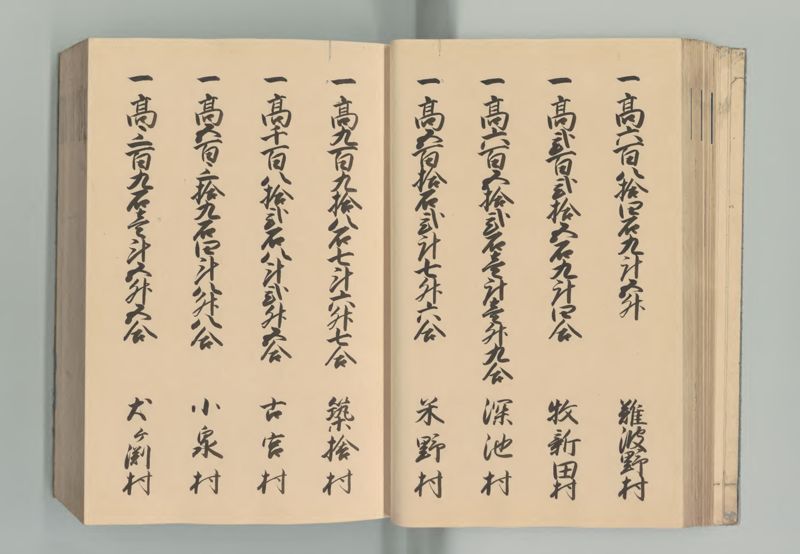 一高六百八拾四石九斗五升
難波野村
一高弐百弐拾五石九斗四合
牧新田村
一高六百五拾弐石壱斗壱升九合
深池村
一高五百拾石弐斗七升六合
米野村
一高九百九拾八石七斗六升七合
築捨村
一高千百八拾弐石八斗弐升五合
古宮村
一高五百三拾九石四斗八升八合
小泉村
一高三百九石壱斗五升五合
犬ヶ渕村